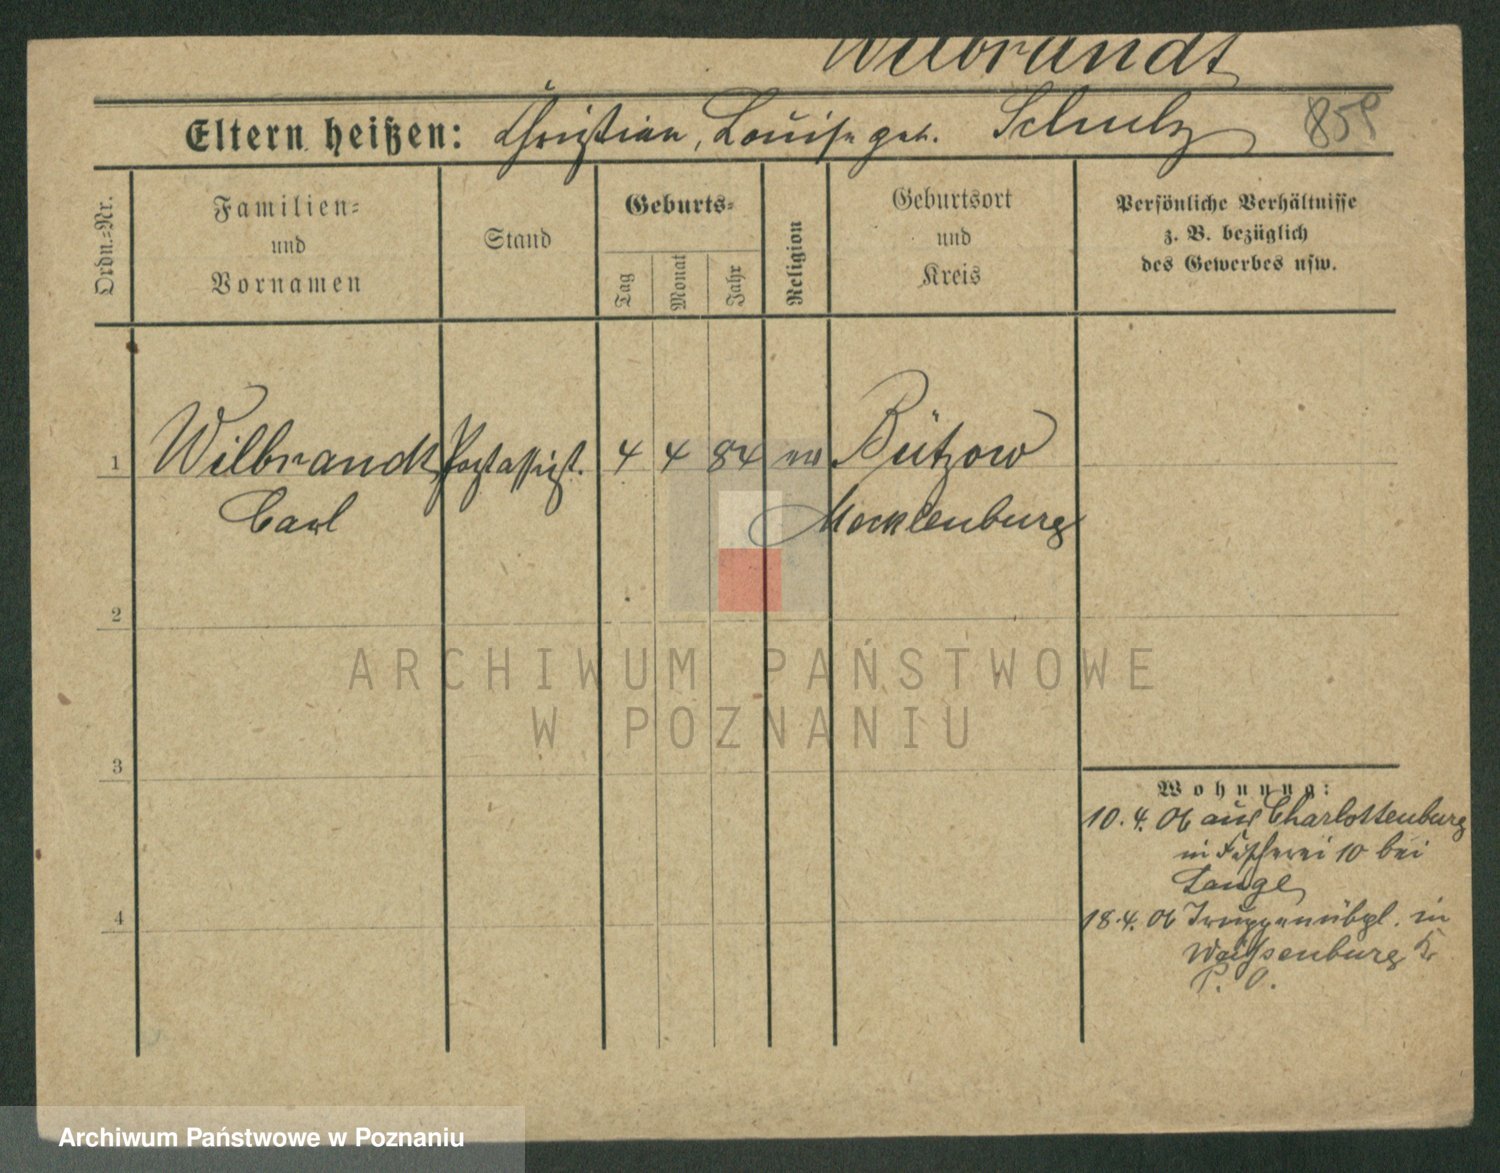 Wilbrandt
Eltern heißen: Christian, Louise geb. Schulz 859
Ordn.=Nr.
Familien=
und
Vornamen
Stand
Geburts=
Tag
Monat
Jahr
Religion
Geburtsort
und
Kreis
Persönliche Verhältnisse
z. B. bezüglich
des Gewerbes usw.
1 Wilbrandt Postassist. 4 4 84 ev Bützow
Carl Mecklenburg
2
3
4
Wohnung:
10.4.06 aus Charlottenburg
in Fischerei 10 bei
Lange
18.4.06 Truppenübpl. in
Weißenburg Kr
P. O.
ARCHIWUM PAŃSTWOWE
W POZNANIU
Archiwum Państwowe w Poznaniu